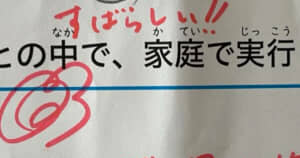 すばらしい!!
との中で、家庭で実行
なか か てい じっ こう